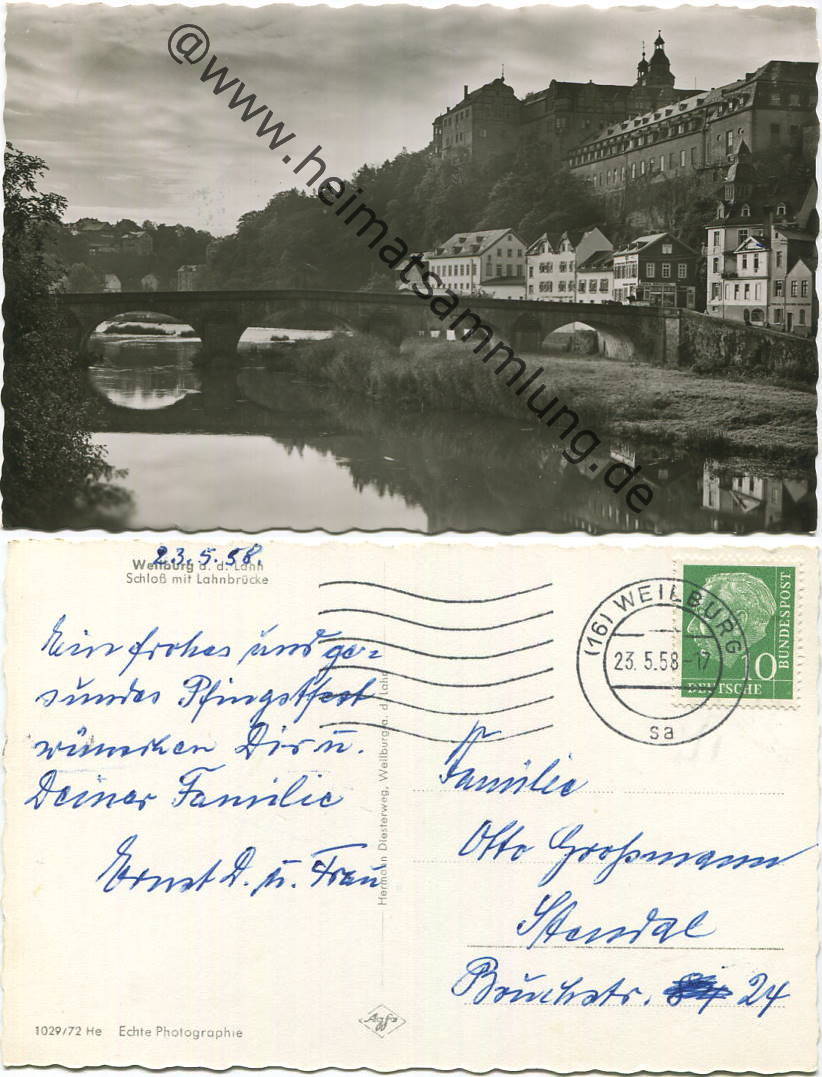 @www.heimatsammlung.de
23.5.58.
Weilburg a. d. Lahn
Schloß mit Lahnbrücke
Ein frohes und ge=
sundes Pfingstfest
wünschen Dir u.
Deiner Familie
Ernst D. u. Frau
Hermann Diesterweg, Weilburg a. d. Lahn
1029/72 He Echte Photographie
Agfa
(16) WEILBURG
23.5.58-17
sa
DEUTSCHE
BUNDESPOST
10
Familie
Otto Großmann
Stendal
Bruchstr. 24